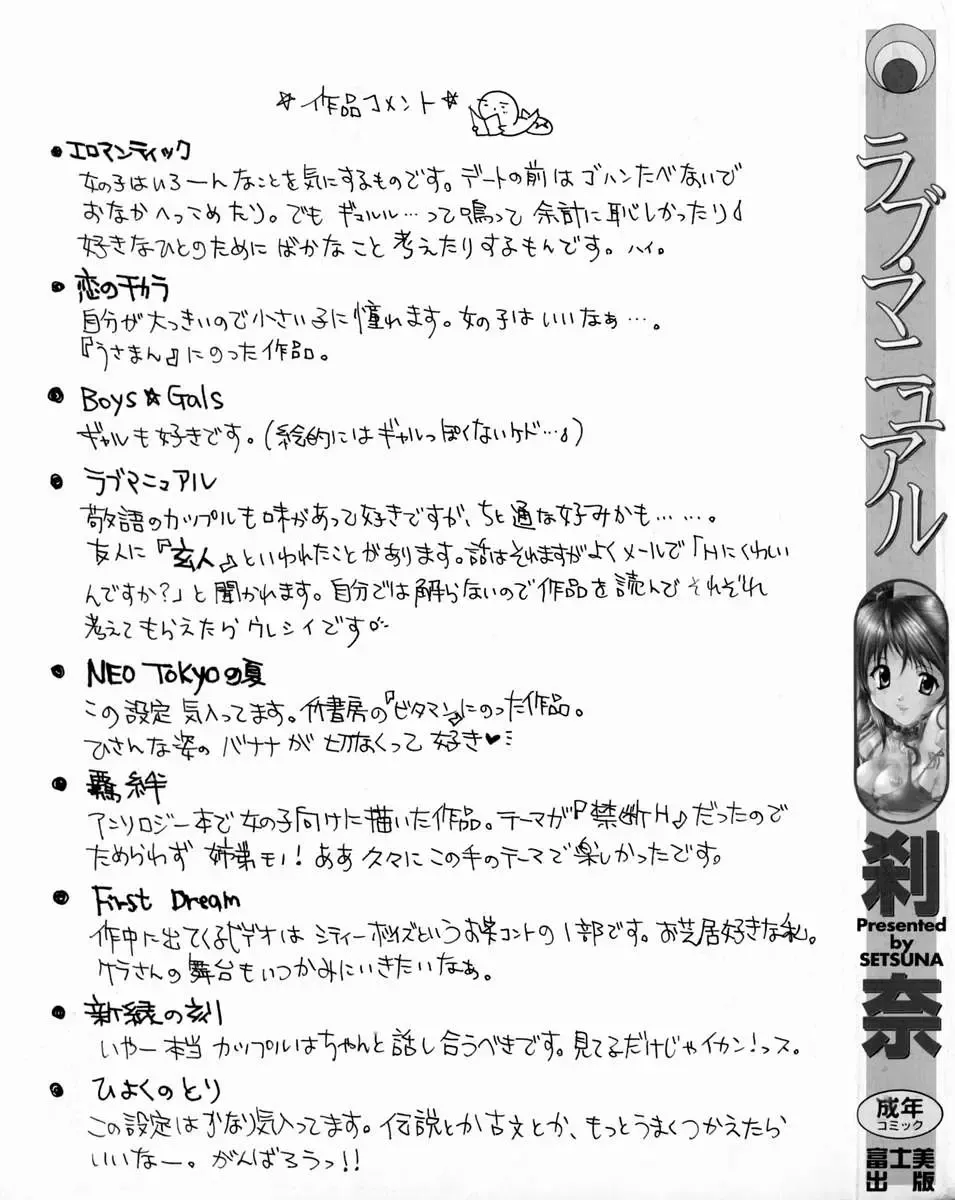 ☆作品コメント☆
●エロマンティック
女の子はいろーんなことを気にするものです。デートの前はゴハンたべないで
おなかへっこめたり。でもギュルル…って鳴って余計に恥しかったり♪
好きなひとのためにばかなこと考えたりするもんです。ハイ。
●恋のチカラ
自分が大っきいので小さい子に憧れます。女の子はいいなぁ…。
『うさまん』にのった作品。
●Boys☆Gals
ギャルも好きです。(絵的にはギャルっぽくないケド…♪)
●ラブマニュアル
敬語のカップルも味があって好きですが、ちと通な好みかも……。
友人に『玄人』といわれたことがあります。話はそれますがよくメールで「Hにくわしい
んですか?」と聞かれます。自分では解らないので作品を読んでそれぞれ
考えてもらえたらウレシイです
●NEO TOKYOの夏
この設定気入ってます。竹書房の『ビタマン』にのった作品。
ひさんな姿のバナナが切なくって好き♥
●羇絆
アンソロジー本で女の子向けに描いた作品。テーマが『禁断H』だったので
ためらわず姉弟モノ!ああ久々にこの手のテーマで楽しかったです。
●First Dream
作中に出てくるビデオはシティーボイズというお笑コントの1部です。お芝居好きな私。
ケラさんの舞台もいつかみにいきたいなぁ。
●新緑の刻
いやー本当カップルはちゃんと話し合うべきです。見てるだけじゃイカン!っス。
●ひよくのとり
この設定はかなり気入ってます。伝説とか古文とか、もっとうまくつかえたら
いいなー。がんばろうっ!!
ラブ・マニュアル
刹奈
Presented
by
SETSUNA
成年
コミック
富士美
出版